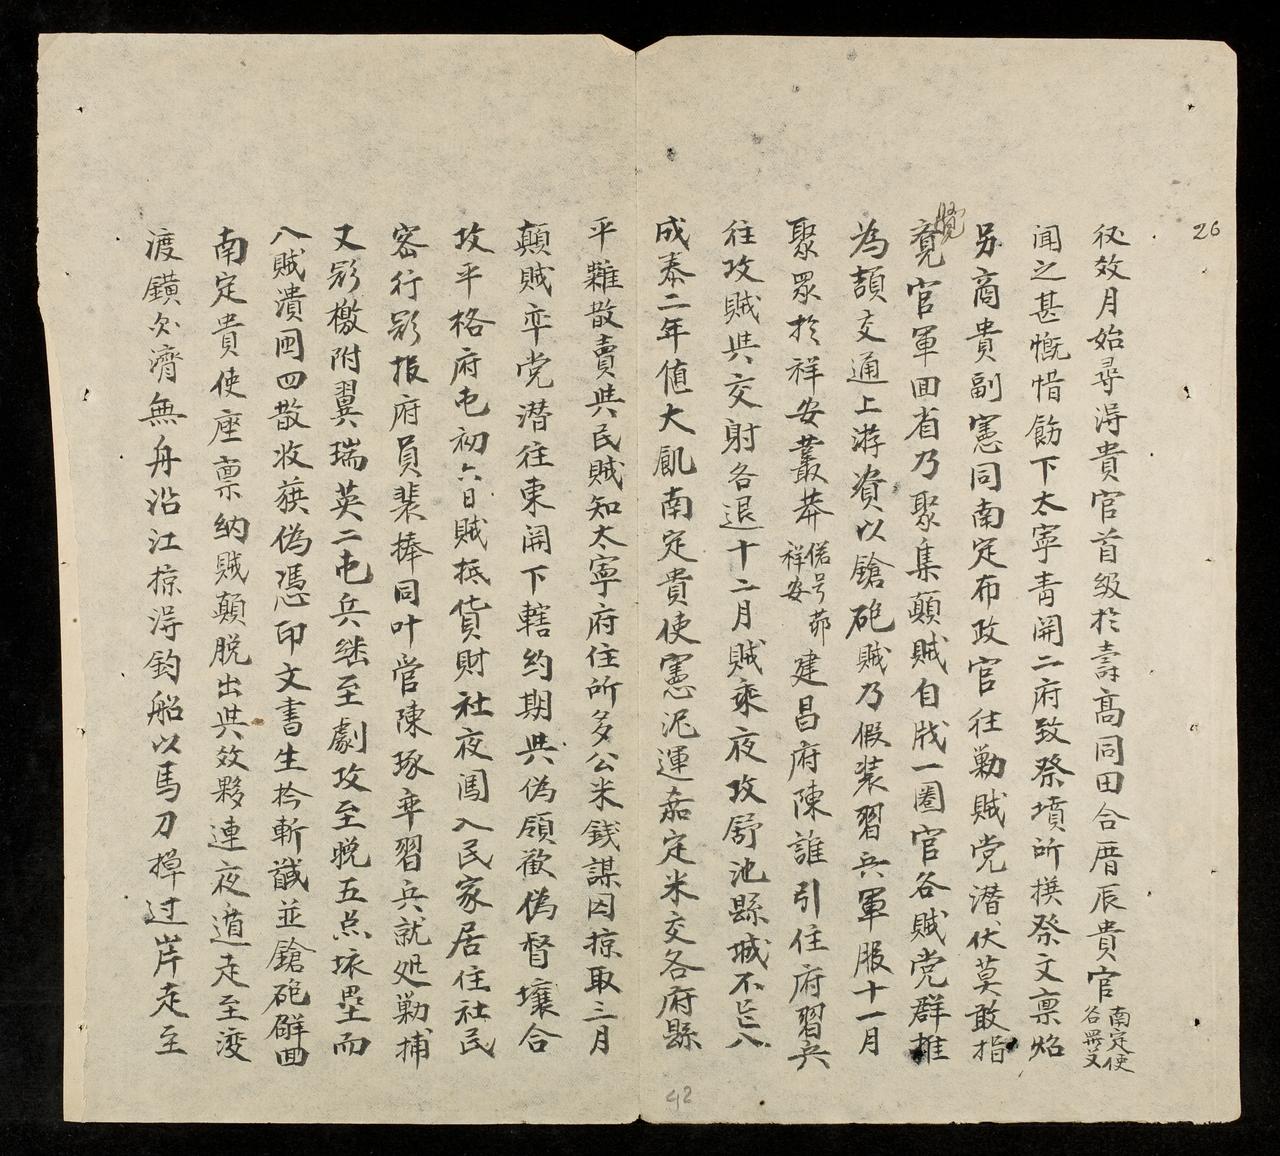 26
後效月始尋淂貴官首级於壽髙同田合厝辰貴官南定使谷罢义
闻之甚慨惜飭下太寧青開二府致祭墳所撰祭文禀焰
另商貴副憲同南定布政官往勦賊党潜伏莫敢指
覽
竟官軍囬省乃聚集顛賊自戕一圏官各賊党群推
為頡交通上游資以鎗砲賊乃假装習兵軍服十一月
聚眾於祥安叢莽偌号茆祥安建昌府陳誰引住府習兵
往攻賊與交射各退十二月賊乘夜攻舒池縣城不㠯入
成泰二年値大飢南定貴使憲泥運嘉定米交各府縣
平糶散賣與民賊知太寧府住所多公米銭謀因掠取三月
顛賊率党潜往東開下轄約期與偽領歡偽督壤合
攻平格府屯初六日賊抵貨財社夜闯入民家居住社民
密行影报府員裴捧同叶管陳琢率習兵就処勦捕
又影檄附翼瑞英二屯兵継至劇攻至晚五点坺壘而
入賊潰囬四散收獲偽憑印文書生拎斬馘並鎗砲觧囬
南定貴使座禀纳賊顛脱出與效夥連夜遁走至渡
渡鐄欠濟無舟沿江掠淂釣船以馬刀掉过岸走主
42